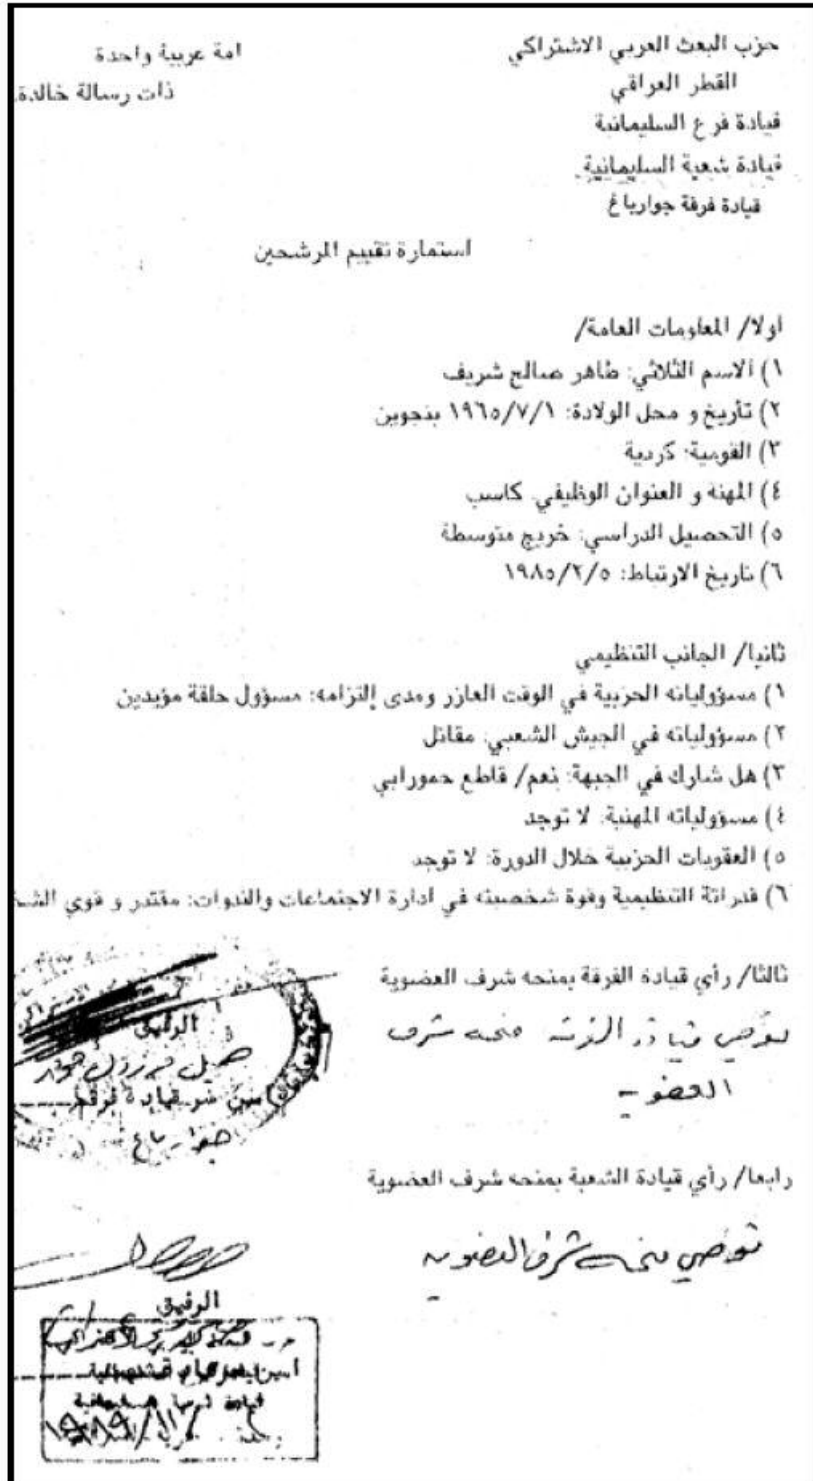 حزب البعث العربي الاشتراكي
امة عربية واحدة
القطر العراقي
ذات رسالة خالدة
قيادة فرع السليمانية
قيادة شعبة السليمانية
قيادة فرقة جوارباغ
استمارة تقييم المرشحين
اولا/ المعلومات العامة/
١) الاسم الثلاثي: طاهر صالح شريف
٢) تأريخ و محل الولادة: ١٩٦٥/٧/١ بنجوين
٣) القومية: كردية
٤) المهنة و العنوان الوظيفي: كاسب
٥) التحصيل الدراسي: خريج متوسطة
٦) تاريخ الارتباط: ١٩٨٥/٢/٥
ثانيا/ الجانب التنظيمي
١) مسؤولياته الحزبية في الوقت العازر ومدى إلتزامه: مسؤول حلقة مؤيدين
٢) مسؤولياته في الجيش الشعبي: مقاتل
٣) هل شارك في الجبهة: نعم/ قاطع حمورابي
٤) مسؤولياته المهنية: لا توجد
٥) العقوبات الحزبية خلال الدورة: لا توجد
٦) قدراتة التنظيمية وقوة شخصيته في ادارة الاجتماعات والندوات: مقتدر و قوي
ثالثا/ رأي قيادة الفرقة بمنحه شرف العضوية
نوصي قيادة الفرقة منحه شرف
العضوية
الرفيق
امين سر قيادة فرقة
رابعا/ رأي قيادة الشعبة بمنحه شرف العضوية
نوصي منحه شرف العضوية
الرفيق